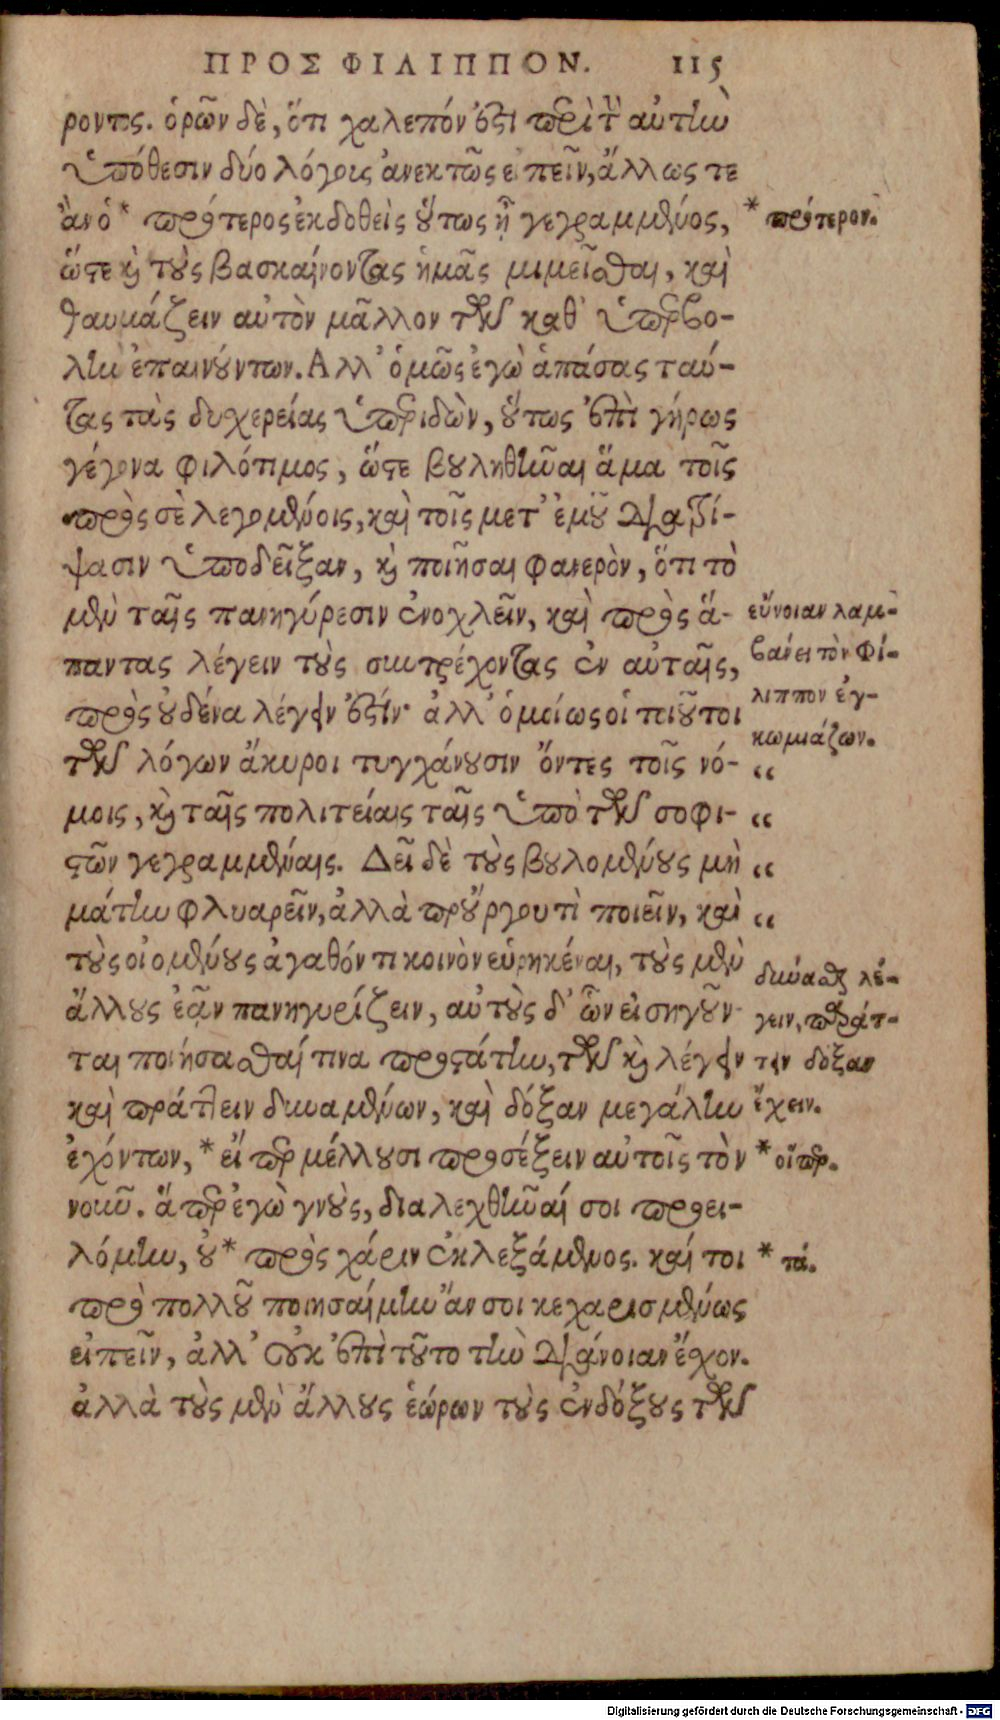 ΠΡΟΣ ΦΙΛΙΠΠΟΝ. 115
ροντες. ὁρῶν δὲ, ὅτι χαλεπόν ἐστι περὶ τὴν αὐτὴν
ὑπόθεσιν δύο λόγους ἀνεκτῶς εἰπεῖν, ἄλλως τε
ἂν ὁ * πρότερος ἐκδοθεὶς οὕτως ᾖ γεγραμμένος,
* πρότερον.
ὥστε καὶ τοὺς βασκαίνοντας ἡμᾶς μιμεῖσθαι, καὶ
θαυμάζειν αὐτὸν μᾶλλον τῶν καθ' ὑπερβο-
λὴν ἐπαινούντων. Ἀλλ' ὁμῶς ἐγὼ ἁπάσας ταύ-
τας τὰς δυχερείας ὑπεριδὼν, οὕτως ἐπὶ γήρως
γέγονα φιλότιμος, ὥστε βουληθῆναι ἅμα τοῖς
πρὸς σὲ λεγομένοις, καὶ τοῖς μετ' ἐμοῦ διατρί-
ψασιν ὑποδεῖξαι, καὶ ποιῆσαι φανερὸν, ὅτι τὸ
μὲν ταῖς πανηγύρεσιν ἐνοχλεῖν, καὶ πρὸς ἅ-
παντας λέγειν τοὺς συντρέχοντας ἐν αὐταῖς,
πρὸς οὐδένα λέγειν ἐστίν· ἀλλ' ὁμοίως οἱ τοιοῦτοι
τῶν λόγων ἄκυροι τυγχάνουσιν ὄντες τοῖς νό-
μοις, καὶ ταῖς πολιτείαις ταῖς ὑπὸ τῶν σοφι-
στῶν γεγραμμέναις. Δεῖ δὲ τοὺς βουλομένους μὴ
μάτην φλυαρεῖν, ἀλλὰ προὔργου τὶ ποιεῖν, καὶ
εὔνοιαν λαμ-
βάνει τὸν Φί-
λιππον ἐγ-
κωμιάζων.
“
“
“
“
τοὺς οἰομένους ἀγαθόν τι κοινὸν εὑρηκέναι, τοὺς μὲν
ἄλλους ἐᾷν πανηγυρίζειν, αὐτοὺς δ' ὧν εἰσηγοῦν-
ται ποιήσασθαί τινα προστάτην, τῶν καὶ λέγειν
καὶ πράττειν δυναμένων, καὶ δόξαν μεγάλην
δύνασθαι λέ-
γειν, πράτ-
τειν δόξαν
ἔχειν.
ἐχόντων, * εἴπερ μέλλουσι προσέξειν αὐτοῖς τὸν
* οἵπερ.
νοῦν. ἅπερ ἐγὼ γνοὺς, διαλεχθῆναί σοι προει-
λόμην, οὐ * πρὸς χάριν ἐκλεξάμενος. καί τοι
* τά.
πρὸ πολλοῦ ποιησαίμην ἄν σοι κεχαρισμένως
εἰπεῖν, ἀλλ' οὐκ ἐπὶ τοῦτο τὴν διάνοιαν ἔσχον.
ἀλλὰ τοὺς μὲν ἄλλους ἑώρων τοὺς ἐνδόξους τῶν
Digitalisierung gefördert durch die Deutsche Forschungsgemeinschaft - DFG